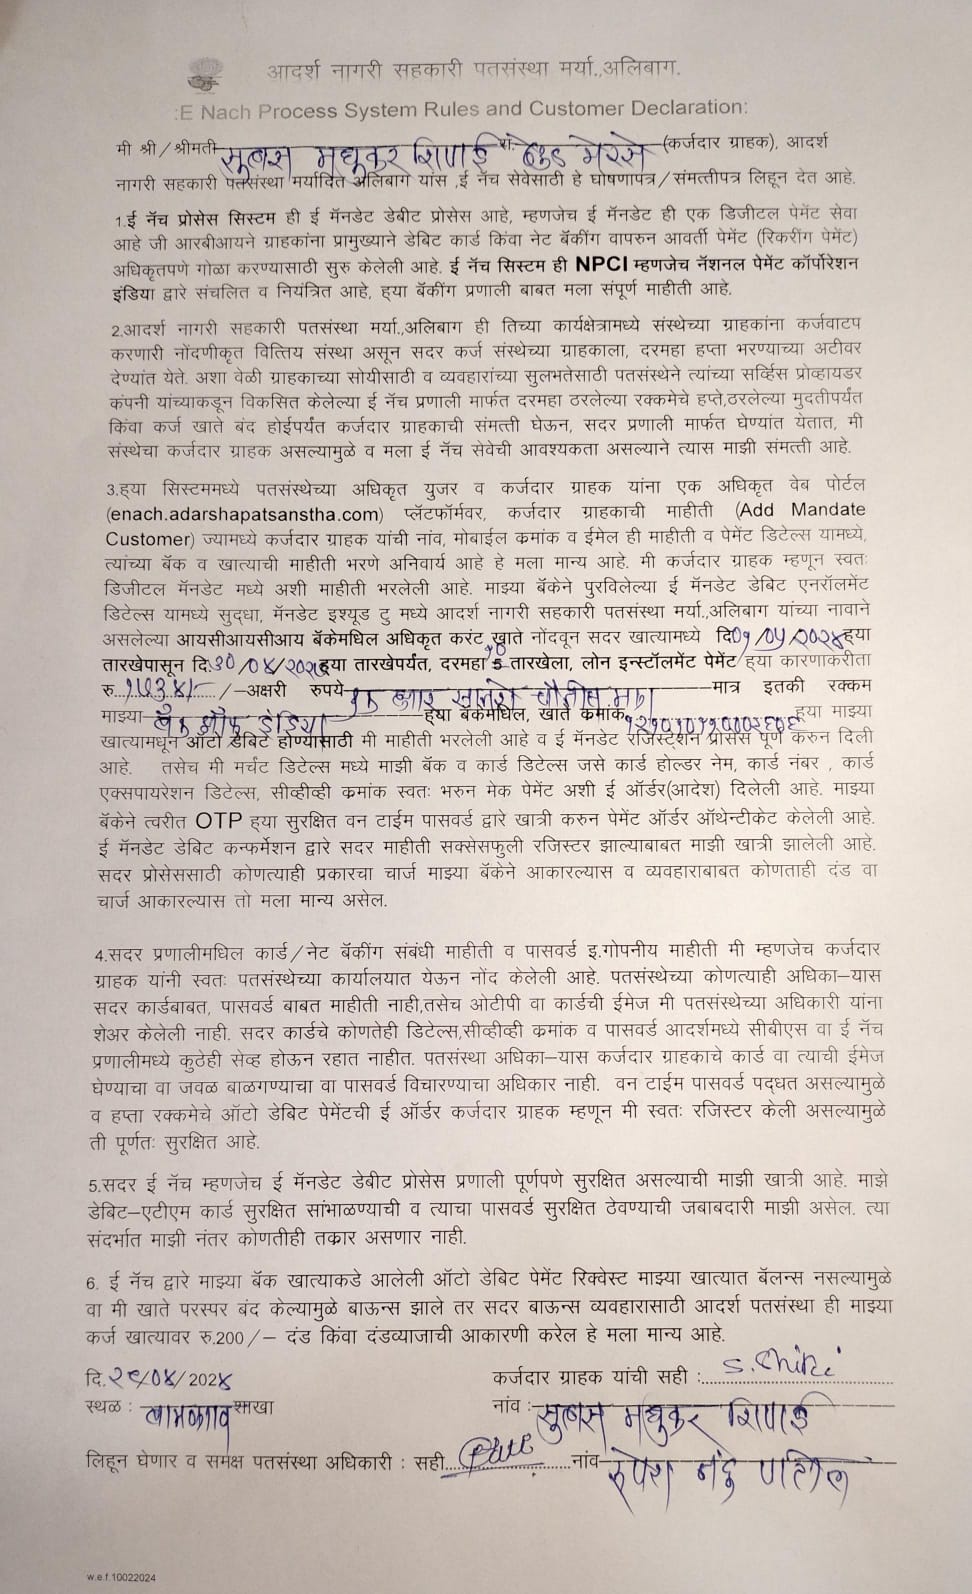 आदर्श नागरी सहकारी पतसंस्था मर्या.,अलिबाग.
:E Nach Process System Rules and Customer Declaration:
मी श्री/श्रीमती सुहास मधुकर शिपाई (कर्जदार ग्राहक), आदर्श
नागरी सहकारी पतसंस्था मर्यादित अलिबाग यांस ,ई नॅच सेवेसाठी हे घोषणापत्र/संमत्तीपत्र लिहून देत आहे.
1.ई नॅच प्रोसेस सिस्टम ही ई मॅनडेट डेबीट प्रोसेस आहे, म्हणजेच ई मॅनडेट ही एक डिजीटल पेमेंट सेवा
आहे जी आरबीआयने ग्राहकांना प्रामुख्याने डेबिट कार्ड किंवा नेट बॅकींग वापरुन आवर्ती पेमेंट (रिकरींग पेमेंट)
अधिकृतपणे गोळा करण्यासाठी सुरु केलेली आहे. ई नॅच सिस्टम ही NPCI म्हणजेच नॅशनल पेमेंट कॉर्पोरेशन
इंडिया द्वारे संचलित व नियंत्रित आहे, ह्या बॅकींग प्रणाली बाबत मला संपूर्ण माहीती आहे.
2.आदर्श नागरी सहकारी पतसंस्था मर्या.,अलिबाग ही तिच्या कार्यक्षेत्रामध्ये संस्थेच्या ग्राहकांना कर्जवाटप
करणारी नोंदणीकृत वित्तिय संस्था असून सदर कर्ज संस्थेच्या ग्राहकाला, दरमहा हप्ता भरण्याच्या अटीवर
देण्यांत येते. अशा वेळी ग्राहकाच्या सोयीसाठी व व्यवहारांच्या सुलभतेसाठी पतसंस्थेने त्यांच्या सर्व्हिस प्रोव्हायडर
कंपनी यांच्याकडून विकसित केलेल्या ई नॅच प्रणाली मार्फत दरमहा ठरलेल्या रक्कमेचे हप्ते,ठरलेल्या मुदतीपर्यंत
किंवा कर्ज खाते बंद होईपर्यंत कर्जदार ग्राहकाची संमत्ती घेऊन, सदर प्रणाली मार्फत घेण्यांत येतात, मी
संस्थेचा कर्जदार ग्राहक असल्यामुळे व मला ई नॅच सेवेची आवश्यकता असल्याने त्यास माझी संमत्ती आहे.
3.ह्या सिस्टममध्ये पतसंस्थेच्या अधिकृत युजर व कर्जदार ग्राहक यांना एक अधिकृत वेब पोर्टल
(enach.adarshapatsanstha.com) प्लॅटफॉर्मवर, कर्जदार ग्राहकाची माहीती (Add Mandate
Customer) ज्यामध्ये कर्जदार ग्राहक यांची नांव, मोबाईल क्रमांक व ईमेल ही माहीती व पेमेंट डिटेल्स यामध्ये,
त्यांच्या बॅक व खात्याची माहीती भरणे अनिवार्य आहे हे मला मान्य आहे. मी कर्जदार ग्राहक म्हणून स्वतः
डिजीटल मॅनडेट मध्ये अशी माहीती भरलेली आहे. माझ्या बॅकेने पुरविलेल्या ई मॅनडेट डेबिट एनरॉलमेंट
डिटेल्स यामध्ये सुद्धा, मॅनडेट इश्यूड टु मध्ये आदर्श नागरी सहकारी पतसंस्था मर्या.,अलिबाग यांच्या नावाने
असलेल्या आयसीआयसीआय बॅकेमधिल अधिकृत करंट खाते नोंदवून सदर खात्यामध्ये दि०१/०५/२०२४ह्या
तारखेपासून दि.३०/०४/ ह्या तारखेपर्यंत, दरमहा १० तारखेला, लोन इन्स्टॉलमेंट पेमेंट ह्या कारणाकरीता
रु. /-अक्षरी रुपये मात्र इतकी रक्कम
माझ्या बँक ऑफ इंडिया ह्या बॅकेमधिल, खाते क्रमांक ह्या माझ्या
खात्यामधून ऑटो डेबिट होण्यासाठी मी माहीती भरलेली आहे व ई मॅनडेट रजिस्ट्रेशन प्रोसेस पूर्ण करुन दिली
आहे. तसेच मी मर्चंट डिटेल्स मध्ये माझी बॅक व कार्ड डिटेल्स जसे कार्ड होल्डर नेम, कार्ड नंबर , कार्ड
एक्सपायरेशन डिटेल्स, सीव्हीव्ही क्रमांक स्वतः भरुन मेक पेमेंट अशी ई ऑर्डर(आदेश) दिलेली आहे. माझ्या
बॅकेने त्वरीत OTP ह्या सुरक्षित वन टाईम पासवर्ड द्वारे खात्री करुन पेमेंट ऑर्डर ऑथेन्टीकेट केलेली आहे.
ई मॅनडेट डेबिट कन्फर्मेशन द्वारे सदर माहीती सक्सेसफुली रजिस्टर झाल्याबाबत माझी खात्री झालेली आहे.
सदर प्रोसेससाठी कोणत्याही प्रकारचा चार्ज माझ्या बॅकेने आकारल्यास व व्यवहाराबाबत कोणताही दंड वा
चार्ज आकारल्यास तो मला मान्य असेल.
4.सदर प्रणालीमधिल कार्ड/नेट बॅकींग संबंधी माहीती व पासवर्ड इ.गोपनीय माहीती मी म्हणजेच कर्जदार
ग्राहक यांनी स्वतः पतसंस्थेच्या कार्यालयात येऊन नोंद केलेली आहे. पतसंस्थेच्या कोणत्याही अधिका–यास
सदर कार्डबाबत, पासवर्ड बाबत माहीती नाही,तसेच ओटीपी वा कार्डची ईमेज मी पतसंस्थेच्या अधिकारी यांना
शेअर केलेली नाही. सदर कार्डचे कोणतेही डिटेल्स,सीव्हीव्ही क्रमांक व पासवर्ड आदर्शमध्ये सीबीएस वा ई नॅच
प्रणालीमध्ये कुठेही सेव्ह होऊन रहात नाहीत. पतसंस्था अधिका–यास कर्जदार ग्राहकाचे कार्ड वा त्याची ईमेज
घेण्याचा वा जवळ बाळगण्याचा वा पासवर्ड विचारण्याचा अधिकार नाही. वन टाईम पासवर्ड पद्धत असल्यामुळे
व हप्ता रक्कमेचे ऑटो डेबिट पेमेंटची ई ऑर्डर कर्जदार ग्राहक म्हणून मी स्वतः रजिस्टर केली असल्यामुळे
ती पूर्णतः सुरक्षित आहे.
5.सदर ई नॅच म्हणजेच ई मॅनडेट डेबीट प्रोसेस प्रणाली पूर्णपणे सुरक्षित असल्याची माझी खात्री आहे. माझे
डेबिट–एटीएम कार्ड सुरक्षित सांभाळण्याची व त्याचा पासवर्ड सुरक्षित ठेवण्याची जबाबदारी माझी असेल. त्या
संदर्भात माझी नंतर कोणतीही तक्रार असणार नाही.
6. ई नॅच द्वारे माझ्या बॅक खात्याकडे आलेली ऑटो डेबिट पेमेंट रिक्वेस्ट माझ्या खात्यात बॅलन्स नसल्यामुळे
वा मी खाते परस्पर बंद केल्यामुळे बाऊन्स झाले तर सदर बाऊन्स व्यवहारासाठी आदर्श पतसंस्था ही माझ्या
कर्ज खात्यावर रु.200/– दंड किंवा दंडव्याजाची आकारणी करेल हे मला मान्य आहे.
दि.२९/०४/202४ कर्जदार ग्राहक यांची सही :
स्थळ : शाखा नांव : सुहास मधुकर शिपाई
लिहून घेणार व समक्ष पतसंस्था अधिकारी : सही नांव रुपेश नंदू पाटील
w.e.f.10022024